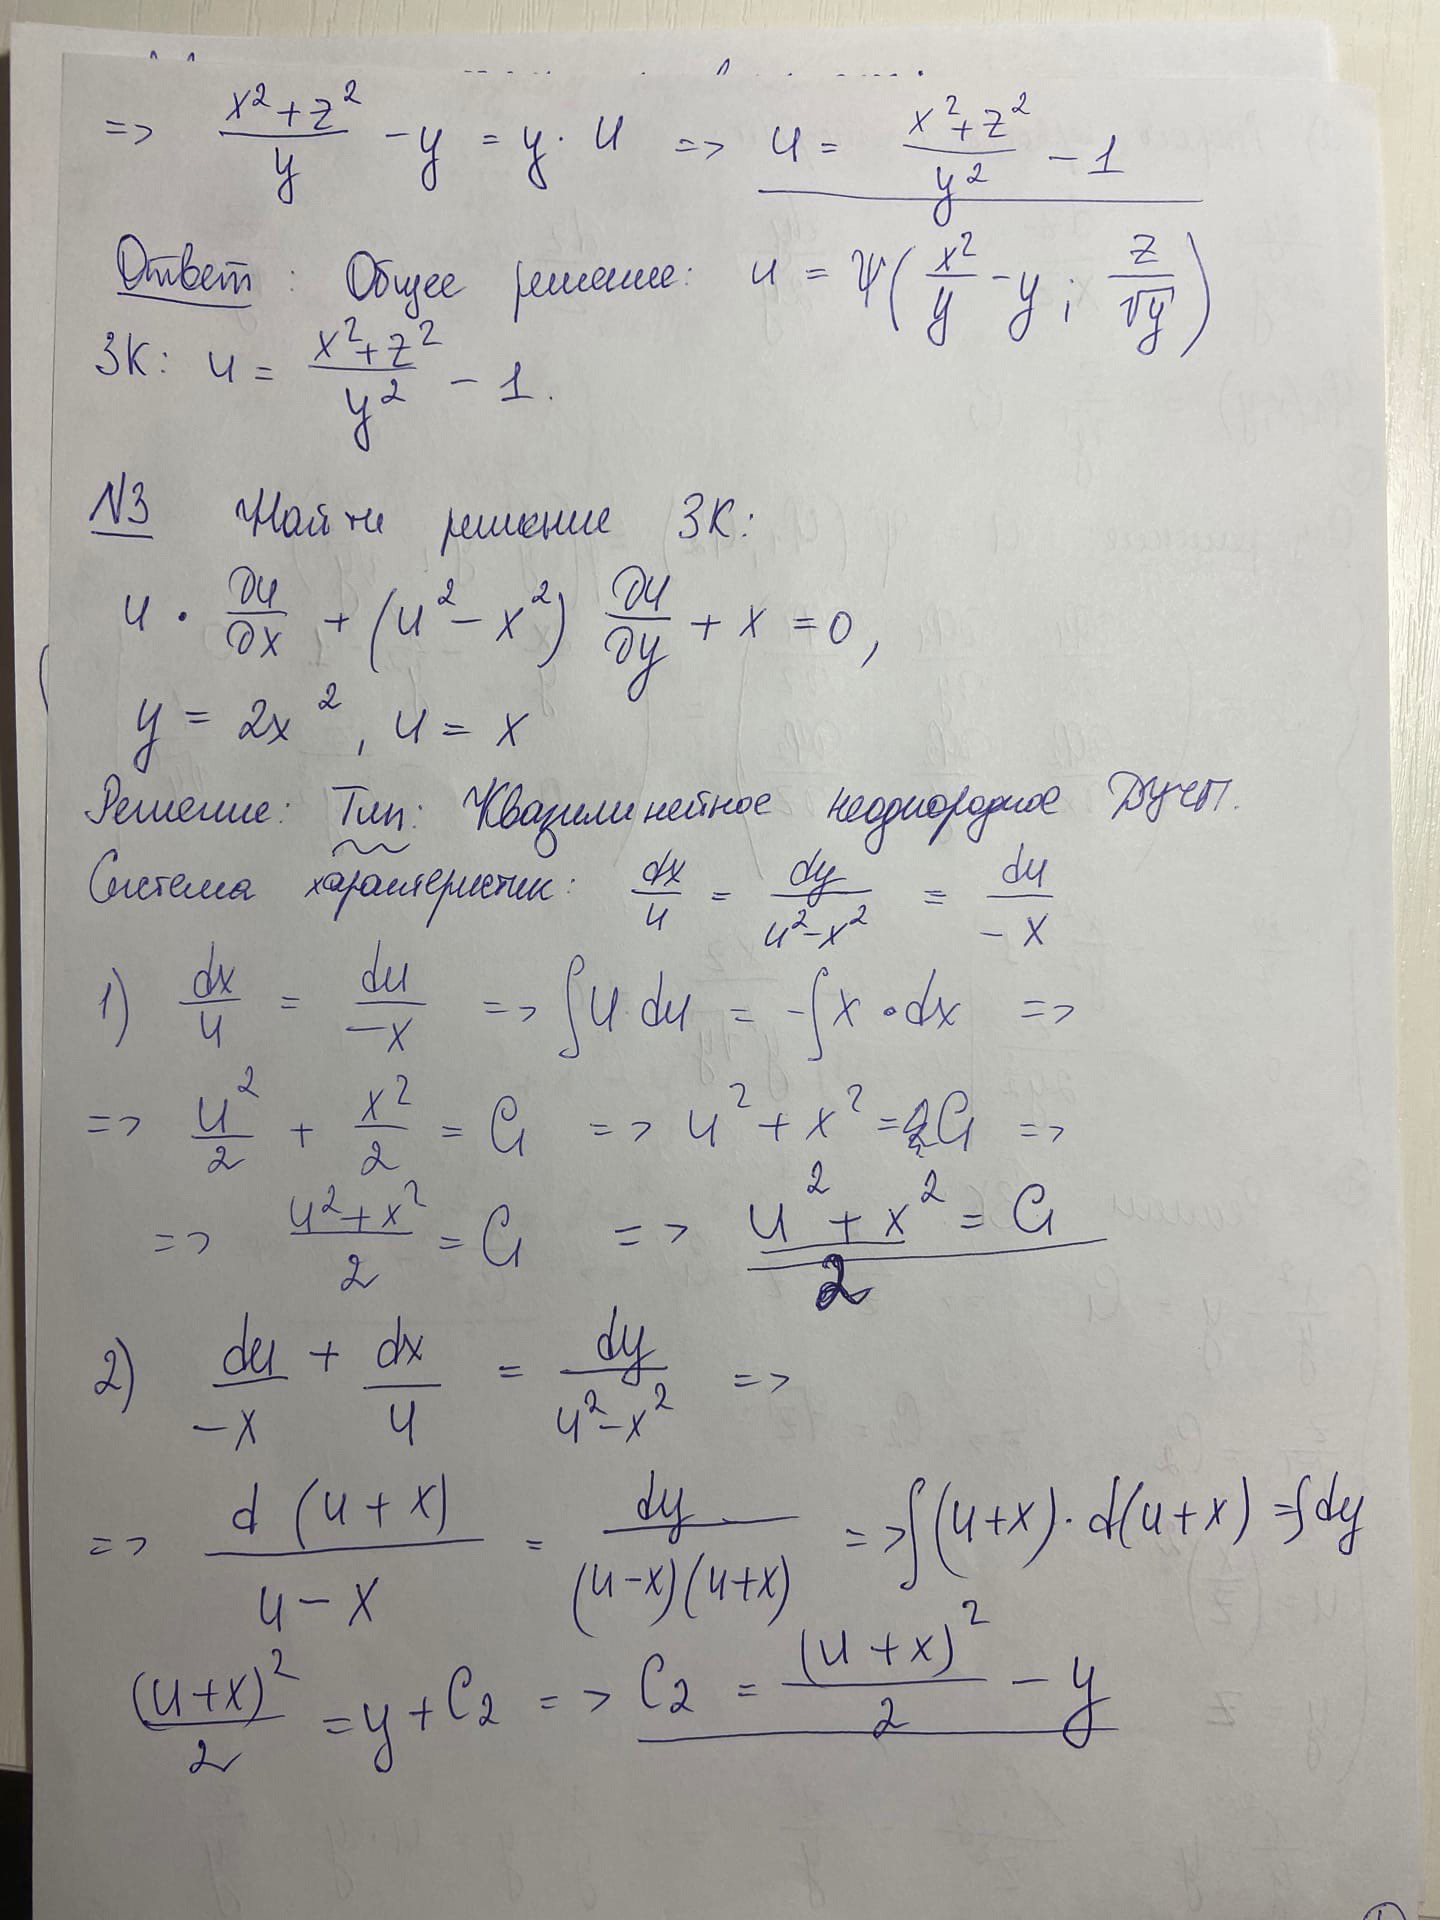 => (x²+z²)/y - y = y · u => u = (x²+z²)/y² - 1
Ответ: Общее решение: u = Ψ(x²/y - y; z/√y)
ЗК: u = (x²+z²)/y² - 1.
N3 Найти решение ЗК:
u · ∂u/∂x + (u² - x²) ∂u/∂y + x = 0,
y = 2x², u = x
Решение: Тип: Квазилинейное неоднородное ДУЧП.
Система характеристик: dx/u = dy/(u²-x²) = du/(-x)
1) dx/u = du/(-x) => ∫u du = -∫x · dx =>
=> u²/2 + x²/2 = C₁ => u² + x² = 2C₁ =>
=> (u²+x²)/2 = C₁ => (u²+x²)/2 = C₁
2) du/(-x) + dx/u = dy/(u²-x²) =>
=> d(u+x)/(u-x) = dy/((u-x)(u+x)) => ∫(u+x) · d(u+x) = ∫dy
(u+x)²/2 = y + C₂ => C₂ = (u+x)²/2 - y